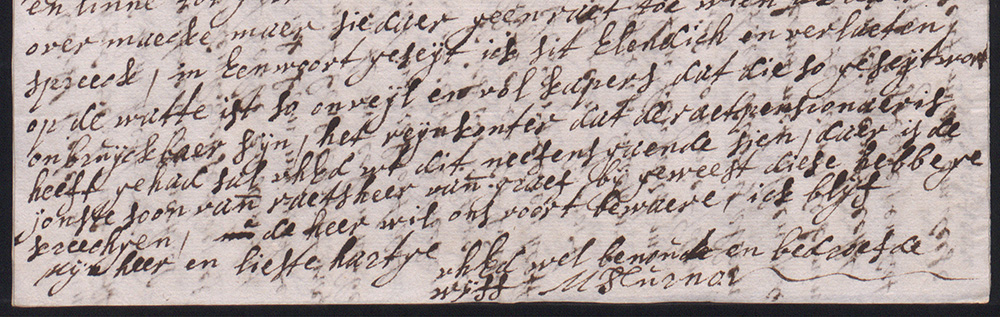 en linne
over maecke maer sie daer geen raet toe
spreeck, in Eenwoort geseyt ick sit Elendich en verlaeten
op de watte ist so onveyl en vol kapers dat die so geseyt wort
onbruyckbaer syn, het reynkonter dat de raetpensionaeris
heeft gehad sal uhEd ut dit neffens gaende sien, daer is de
jonste soon van raetsheer van graef by geweest diese hebbe ge
spreecken, de heer wil ons voort bewaere, ick blyf
myn heer en liefste hartye
uhEd wel benoude en bedroefde
wyff M Turnor